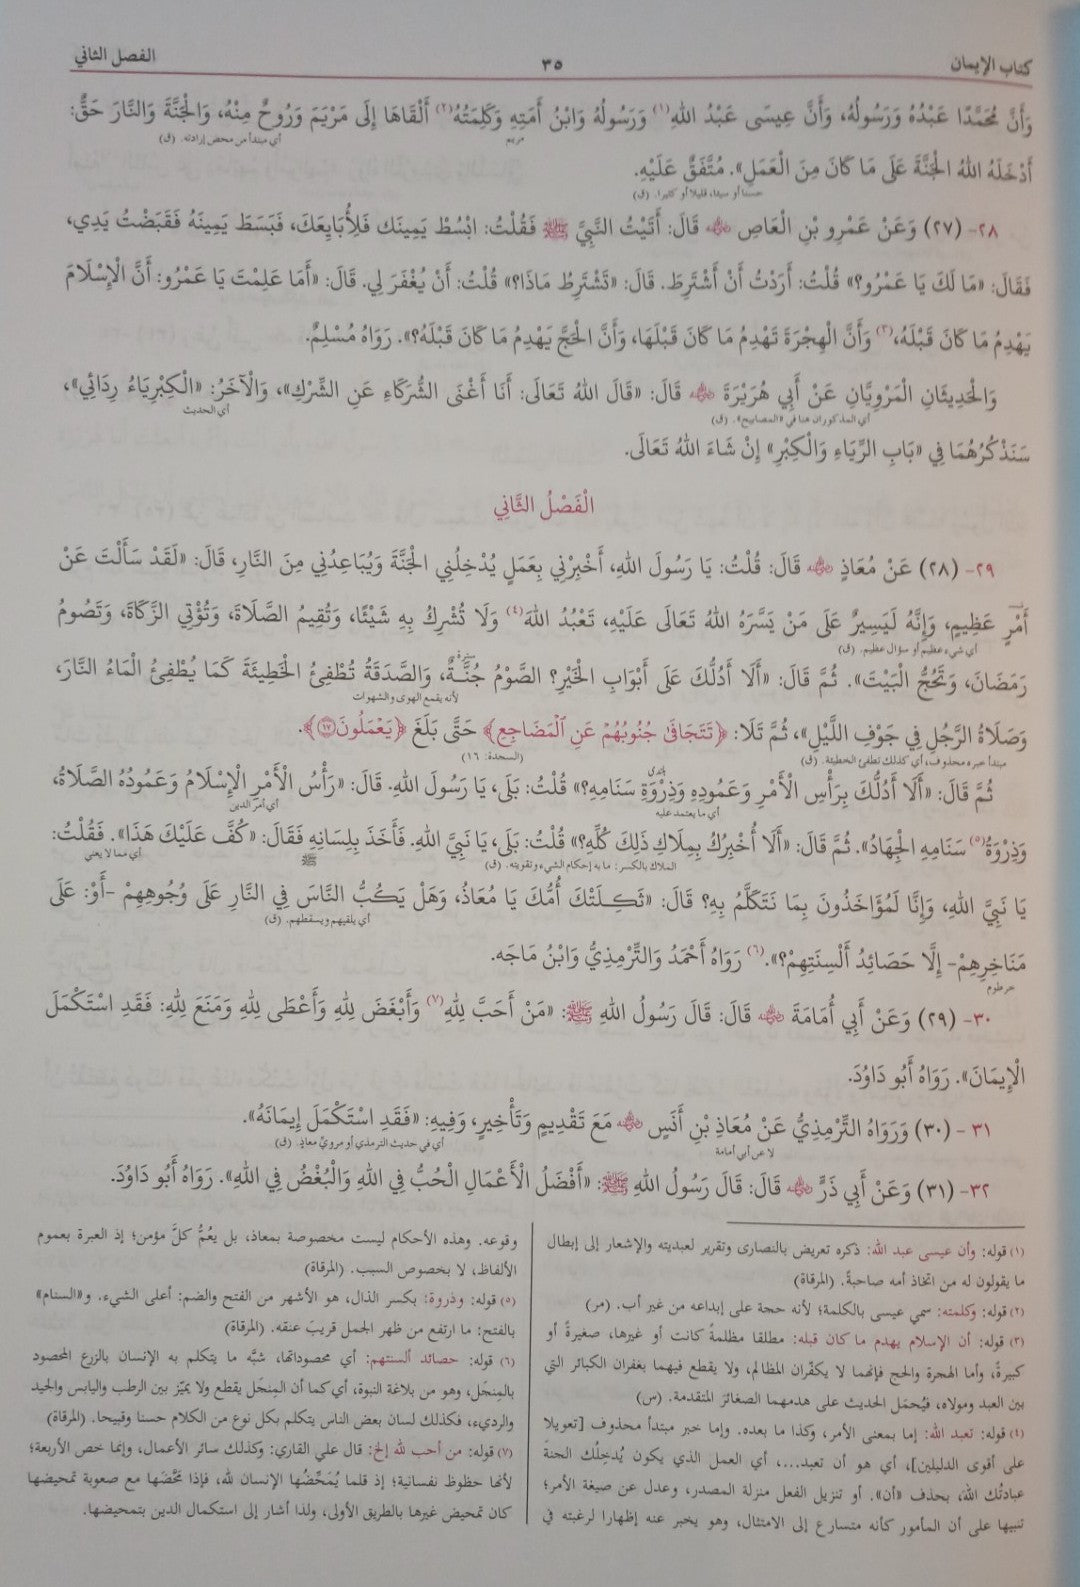 كتاب الإيمان ٣٥ الفصل الثاني
وَأَنَّ مُحَمَّدًا عَبْدُهُ وَرَسُولُهُ، وَأَنَّ عِيسَى عَبْدُ اللهِ(١) وَرَسُولُهُ وَابْنُ أَمَتِهِ وَكَلِمَتُهُ(٢) أَلْقَاهَا إِلَى مَرْيَمَ وَرُوحٌ مِنْهُ، وَالْجَنَّةَ وَالنَّارَ حَقٌّ:
مريم أي مبتدأ من محض إرادته. (ق)
أَدْخَلَهُ اللهُ الْجَنَّةَ عَلَى مَا كَانَ مِنَ الْعَمَلِ». مُتَّفَقٌ عَلَيْهِ.
حسنا أو سيئا، قليلا أو كثيرا. (ق)
٢٨- (٢٧) وَعَنْ عَمْرِو بْنِ الْعَاصِ ﵁ قَالَ: أَتَيْتُ النَّبِيَّ ﷺ فَقُلْتُ: ابْسُطْ يَمِينَك فَلِأُبَايِعَكَ، فَبَسَطَ يَمِينَهُ فَقَبَضْتُ يَدِي،
فَقَالَ: «مَا لَكَ يَا عَمْرُو؟» قُلْتُ: أَرَدْتُ أَنْ أَشْتَرِطَ. قَالَ: «تَشْتَرِطُ مَاذَا؟» قُلْتُ: أَنْ يُغْفَرَ لِي. قَالَ: «أَمَا عَلِمْتَ يَا عَمْرُو: أَنَّ الْإِسْلَامَ
يَهْدِمُ مَا كَانَ قَبْلَهُ،(٣) وَأَنَّ الْهِجْرَةَ تَهْدِمُ مَا كَانَ قَبْلَهَا، وَأَنَّ الْحَجَّ يَهْدِمُ مَا كَانَ قَبْلَهُ؟». رَوَاهُ مُسْلِمٌ.
وَالْحَدِيثَانِ الْمَرْوِيَّانِ عَنْ أَبِي هُرَيْرَةَ ﵁ قَالَ: «قَالَ اللهُ تَعَالَى: أَنَا أَغْنَى الشُّرَكَاءِ عَنِ الشِّرْكِ»، وَالْآخَرُ: «الْكِبْرِيَاءُ رِدَائِي»،
أي المذكوران هنا في «المصابيح». (ق) أي الحديث
سَنَذْكُرُهُمَا فِي «بَابِ الرِّيَاءِ وَالْكِبْرِ» إِنْ شَاءَ اللهُ تَعَالَى.
الْفَصْلُ الثَّانِي
٢٩- (٢٨) عَنْ مُعَاذٍ ﵁ قَالَ: قُلْتُ: يَا رَسُولَ اللهِ، أَخْبِرْنِي بِعَمَلٍ يُدْخِلُنِي الْجَنَّةَ وَيُبَاعِدُنِي مِنَ النَّارِ، قَالَ: «لَقَدْ سَأَلْتَ عَنْ
أَمْرٍ عَظِيمٍ، وَإِنَّهُ لَيَسِيرٌ عَلَى مَنْ يَسَّرَهُ اللهُ تَعَالَى عَلَيْهِ، تَعْبُدُ اللهَ(٤) وَلَا تُشْرِكُ بِهِ شَيْئًا، وَتُقِيمُ الصَّلَاةَ، وَتُؤْتِي الزَّكَاةَ، وَتَصُومُ
أي شيء عظيم أو سؤال عظيم. (ق)
رَمَضَانَ، وَتَحُجُّ الْبَيْتَ». ثُمَّ قَالَ: «أَلَا أَدُلُّكَ عَلَى أَبْوَابِ الْخَيْرِ؟ الصَّوْمُ جُنَّةٌ، وَالصَّدَقَةُ تُطْفِئُ الْخَطِيئَةَ كَمَا يُطْفِئُ الْمَاءُ النَّارَ،
سترة لأنه يقمع الهوى والشهوات
وَصَلَاةُ الرَّجُلِ فِي جَوْفِ اللَّيْلِ»، ثُمَّ تَلَا: ﴿تَتَجَافَىٰ جُنُوبُهُمْ عَنِ ٱلْمَضَاجِعِ﴾ حَتَّى بَلَغَ ﴿يَعْمَلُونَ ١٧﴾.
مبتدأ خبره محذوف، أي كذلك تطفئ الخطيئة. (ق) (السجدة: ١٦)
ثُمَّ قَالَ: «أَلَا أَدُلُّكَ بِرَأْسِ الْأَمْرِ وَعَمُودِهِ وَذِرْوَةِ سَنَامِهِ؟» قُلْتُ: بَلَى، يَا رَسُولَ اللهِ. قَالَ: «رَأْسُ الْأَمْرِ الْإِسْلَامُ وَعَمُودُهُ الصَّلَاةُ،
أي ما يعتمد عليه أي أمر الدين
وَذِرْوَةُ(٥) سَنَامِهِ الْجِهَادُ». ثُمَّ قَالَ: «أَلَا أُخْبِرُكَ بِمِلَاكِ ذَلِكَ كُلِّهِ؟» قُلْتُ: بَلَى، يَا نَبِيَّ اللهِ. فَأَخَذَ بِلِسَانِهِ فَقَالَ: «كُفَّ عَلَيْكَ هَذَا». فَقُلْتُ:
الملاك بالكسر: ما به إحكام الشيء وتقويته. (ق) ﷺ أي مما لا يعني
يَا نَبِيَّ اللهِ، وَإِنَّا لَمُؤَاخَذُونَ بِمَا نَتَكَلَّمُ بِهِ؟ قَالَ: «ثَكِلَتْكَ أُمُّكَ يَا مُعَاذُ، وَهَلْ يَكُبُّ النَّاسَ فِي النَّارِ عَلَى وُجُوهِهِمْ -أَوْ: عَلَى
أي يلقيهم ويسقطهم. (ق)
مَنَاخِرِهِمْ- إِلَّا حَصَائِدُ أَلْسِنَتِهِمْ؟».(٦) رَوَاهُ أَحْمَدُ وَالتِّرْمِذِيُّ وَابْنُ مَاجَه.
خرطوم
٣٠- (٢٩) وَعَنْ أَبِي أُمَامَةَ ﵁ قَالَ: قَالَ رَسُولُ اللهِ ﷺ: «مَنْ أَحَبَّ لِلهِ(٧) وَأَبْغَضَ لِلهِ وَأَعْطَى لِلهِ وَمَنَعَ لِلهِ: فَقَدِ اسْتَكْمَلَ
الْإِيمَانَ». رَوَاهُ أَبُو دَاوُدَ.
٣١- (٣٠) وَرَوَاهُ التِّرْمِذِيُّ عَنْ مُعَاذِ بْنِ أَنَسٍ ﵁ مَعَ تَقْدِيمٍ وَتَأْخِيرٍ، وَفِيهِ: «فَقَدِ اسْتَكْمَلَ إِيمَانَهُ».
لا عن أبي أمامة أي في حديث الترمذي أو مرويّ معاذٍ. (ق)
٣٢- (٣١) وَعَنْ أَبِي ذَرٍّ ﵁ قَالَ: قَالَ رَسُولُ اللهِ ﷺ: «أَفْضَلُ الْأَعْمَالِ الْحُبُّ فِي اللهِ وَالْبُغْضُ فِي اللهِ». رَوَاهُ أَبُو دَاوُدَ.
(١) قوله: وأن عيسى عبد الله: ذكره تعريض بالنصارى وتقرير لعبديته والإشعار إلى إبطال
ما يقولون له من اتخاذ أمه صاحبةً. (المرقاة)
(٢) قوله: وكلمته: سمي عيسى بالكلمة؛ لأنه حجة على إبداعه من غير أب. (مر)
(٣) قوله: أن الإسلام يهدم ما كان قبله: مطلقا مظلمةً كانت أو غيرها، صغيرةً أو
كبيرةً، وأما الهجرة والحج فإنهما لا يكفّران المظالم، ولا يقطع فيهما بغفران الكبائر التي
بين العبد ومولاه، فيُحمَل الحديث على هدمهما الصغائرَ المتقدمة. (س)
(٤) قوله: تعبد الله: إما بمعنى الأمر، وكذا ما بعده. وإما خبر مبتدأ محذوف [تعويلا
على أقوى الدليلين]، أي هو أن تعبد...، أي العمل الذي يكون يُدخِلُك الجنة
عبادتُك اللهَ، بحذف «أن». أو تنزيل الفعل منزلة المصدر، وعدل عن صيغة الأمر؛
تنبيها على أن المأمور كأنه متسارع إلى الامتثال، وهو يخبر عنه إظهارا لرغبته في
وقوعه. وهذه الأحكام ليست مخصوصة بمعاذ، بل يعُمُّ كلَّ مؤمن؛ إذ العبرة بعموم
الألفاظ، لا بخصوص السبب. (المرقاة)
(٥) قوله: وذروة: بكسر الذال، هو الأشهر من الفتح والضم: أعلى الشيء. و«السنام»
بالفتح: ما ارتفع من ظهر الجمل قريبَ عنقه. (المرقاة)
(٦) قوله: حصائد ألسنتهم: أي محصوداتها، شبَّه ما يتكلم به الإنسان بالزرع المحصود
بالمِنجَل، وهو من بلاغة النبوة، أي كما أن المِنجَل يقطع ولا يميّز بين الرطب واليابس والجيد
والرديء، فكذلك لسان بعض الناس يتكلم بكل نوع من الكلام حسنا وقبيحا. (المرقاة)
(٧) قوله: من أحب لله إلخ: قال علي القاري: وكذلك سائر الأعمال، وإنما خص الأربعة؛
لأنها حظوظ نفسانية؛ إذ قلما يُمَحِّضُها الإنسان لله، فإذا مَحَّضَها مع صعوبة تمحيضها
كان تمحيض غيرها بالطريق الأولى، ولذا أشار إلى استكمال الدين بتمحيضها.